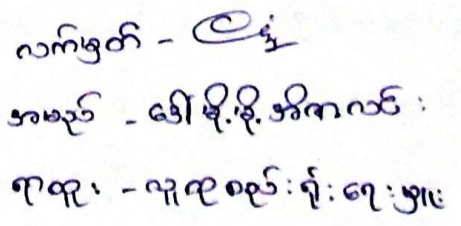 လက်မှတ် -
အမည် - ဒေါ်မို့မို့အိစာလင်း
ရာထူး - လူထုစည်းရုံးရေးမှူး